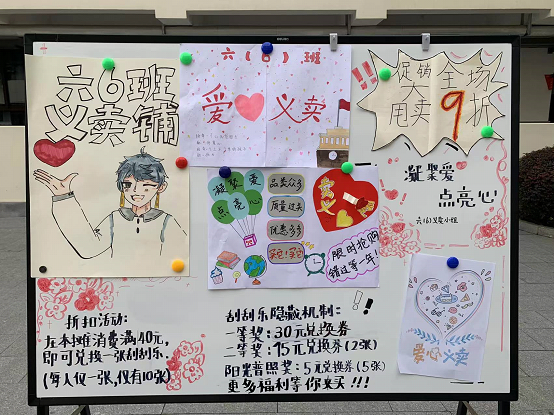 六6班
义卖铺
六(6)班
爱 义卖
促销 全场
大甩卖 9折
凝聚爱
点亮心
六(6)义卖小组
凝聚爱
点亮心
品类众多
质量过关
优惠多多
义卖
限时抢购
错过等一年!
爱心义卖
折扣活动:
在本摊消费满40元,
即可兑换一张刮刮乐.
(每人仅一张,仅有10张)
刮刮乐隐藏机制:
一等奖:30元兑换券
二等奖:15元兑换券(2张)
阳光普照奖:5元兑换券(5张)
更多福利等你来买!!!